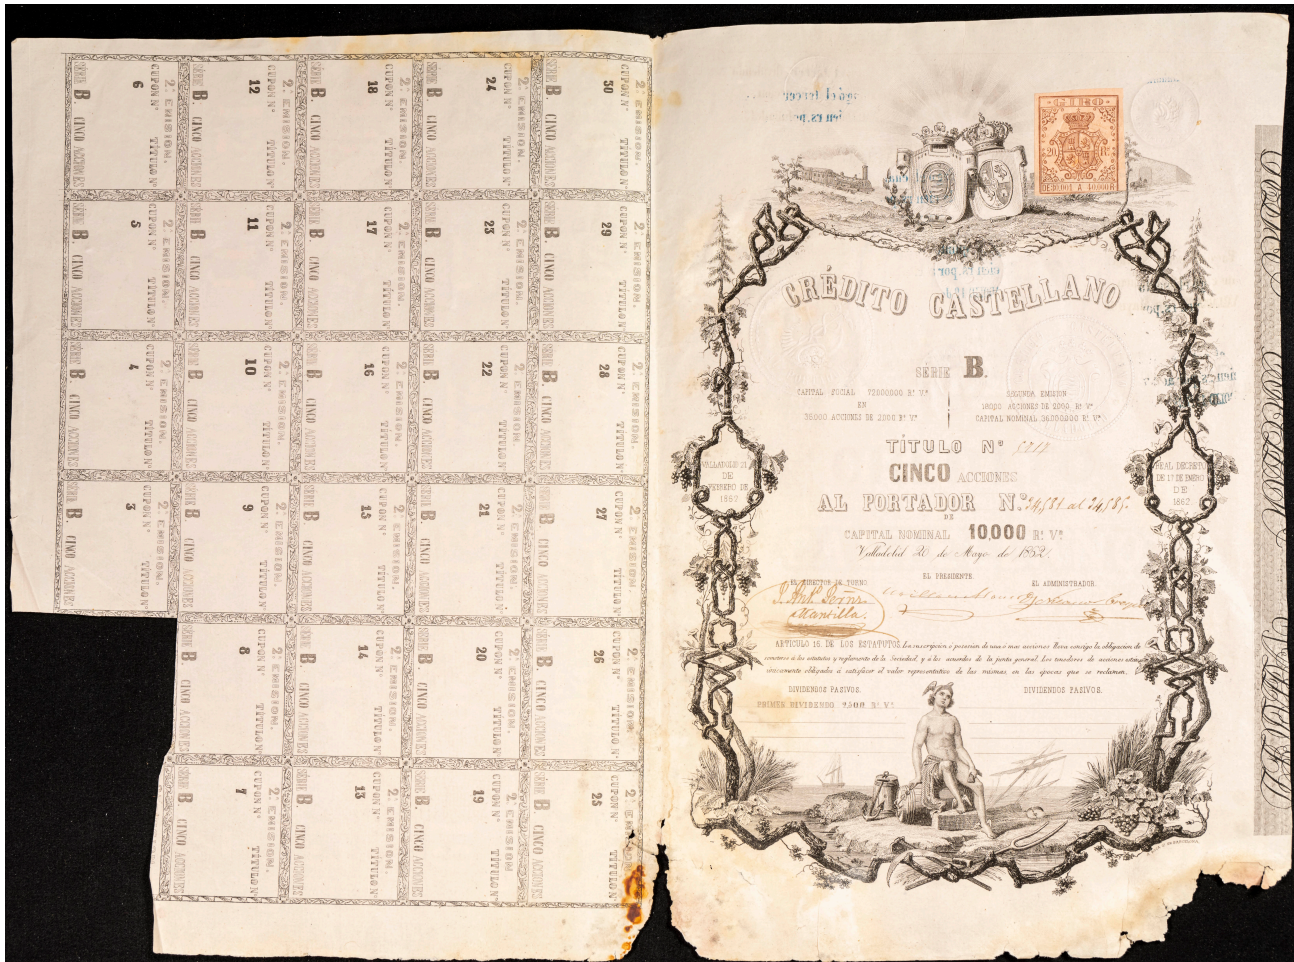 GIRO
DE 30.001 A 40.000 R
CRÉDITO CASTELLANO
SERIE B.
CAPITAL SOCIAL 72000000 Rˢ Vⁿ
EN
36000 ACCIONES DE 2000 Rˢ Vⁿ
SEGUNDA EMISION
18000 ACCIONES DE 2000 Rˢ Vⁿ
CAPITAL NOMINAL 36000000 Rˢ Vⁿ
TÍTULO Nº
CINCO ACCIONES
AL PORTADOR N.ˢ 24,581 al 24,585.
DE
CAPITAL NOMINAL 10,000 Rˢ Vⁿ
Valladolid 20 de Mayo de 1862.
VALLADOLID 21
DE
FEBRERO DE
1862
REAL DECRETO
DE 17 DE ENERO
DE
1862
EL DIRECTOR DE TURNO
EL PRESIDENTE.
EL ADMINISTRADOR.
Mantilla.
ARTICULO 16. DE LOS ESTATUTOS. La suscripcion ó posesion de una ó mas acciones lleva consigo la obligacion de
someterse á los estatutos y reglamento de la Sociedad, y á los acuerdos de la junta general. Los tenedores de acciones estan
únicamente obligados á satisfacer el valor representativo de las mismas, en las épocas que se reclamen.
DIVIDENDOS PASIVOS.
DIVIDENDOS PASIVOS.
PRIMER DIVIDENDO 2,500 Rˢ Vⁿ
2ª EMISION.
CUPON Nº 30 TÍTULO Nº
SÉRIE B. CINCO ACCIONES
2ª EMISION.
CUPON Nº 29 TÍTULO Nº
SÉRIE B. CINCO ACCIONES
2ª EMISION.
CUPON Nº 28 TÍTULO Nº
SÉRIE B. CINCO ACCIONES
2ª EMISION.
CUPON Nº 27 TÍTULO Nº
SÉRIE B. CINCO ACCIONES
2ª EMISION.
CUPON Nº 26 TÍTULO Nº
SÉRIE B. CINCO ACCIONES
2ª EMISION.
CUPON Nº 25 TÍTULO Nº
SÉRIE B. CINCO ACCIONES
2ª EMISION.
CUPON Nº 24 TÍTULO Nº
SÉRIE B. CINCO ACCIONES
2ª EMISION.
CUPON Nº 23 TÍTULO Nº
SÉRIE B. CINCO ACCIONES
2ª EMISION.
CUPON Nº 22 TÍTULO Nº
SÉRIE B. CINCO ACCIONES
2ª EMISION.
CUPON Nº 21 TÍTULO Nº
SÉRIE B. CINCO ACCIONES
2ª EMISION.
CUPON Nº 20 TÍTULO Nº
SÉRIE B. CINCO ACCIONES
2ª EMISION.
CUPON Nº 19 TÍTULO Nº
SÉRIE B. CINCO ACCIONES
2ª EMISION.
CUPON Nº 18 TÍTULO Nº
SÉRIE B. CINCO ACCIONES
2ª EMISION.
CUPON Nº 17 TÍTULO Nº
SÉRIE B. CINCO ACCIONES
2ª EMISION.
CUPON Nº 16 TÍTULO Nº
SÉRIE B. CINCO ACCIONES
2ª EMISION.
CUPON Nº 15 TÍTULO Nº
SÉRIE B. CINCO ACCIONES
2ª EMISION.
CUPON Nº 14 TÍTULO Nº
SÉRIE B. CINCO ACCIONES
2ª EMISION.
CUPON Nº 13 TÍTULO Nº
SÉRIE B. CINCO ACCIONES
2ª EMISION.
CUPON Nº 12 TÍTULO Nº
SÉRIE B. CINCO ACCIONES
2ª EMISION.
CUPON Nº 11 TÍTULO Nº
SÉRIE B. CINCO ACCIONES
2ª EMISION.
CUPON Nº 10 TÍTULO Nº
SÉRIE B. CINCO ACCIONES
2ª EMISION.
CUPON Nº 9 TÍTULO Nº
SÉRIE B. CINCO ACCIONES
2ª EMISION.
CUPON Nº 8 TÍTULO Nº
SÉRIE B. CINCO ACCIONES
2ª EMISION.
CUPON Nº 7 TÍTULO Nº
SÉRIE B. CINCO ACCIONES
2ª EMISION.
CUPON Nº 6 TÍTULO Nº
SÉRIE B. CINCO ACCIONES
2ª EMISION.
CUPON Nº 5 TÍTULO Nº
SÉRIE B. CINCO ACCIONES
2ª EMISION.
CUPON Nº 4 TÍTULO Nº
SÉRIE B. CINCO ACCIONES
2ª EMISION.
CUPON Nº 3 TÍTULO Nº
SÉRIE B. CINCO ACCIONES